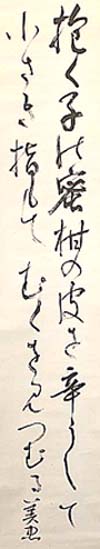 抱く子の蜜柑の皮を辛うして
小さき指もてむくを見つむる 美恵